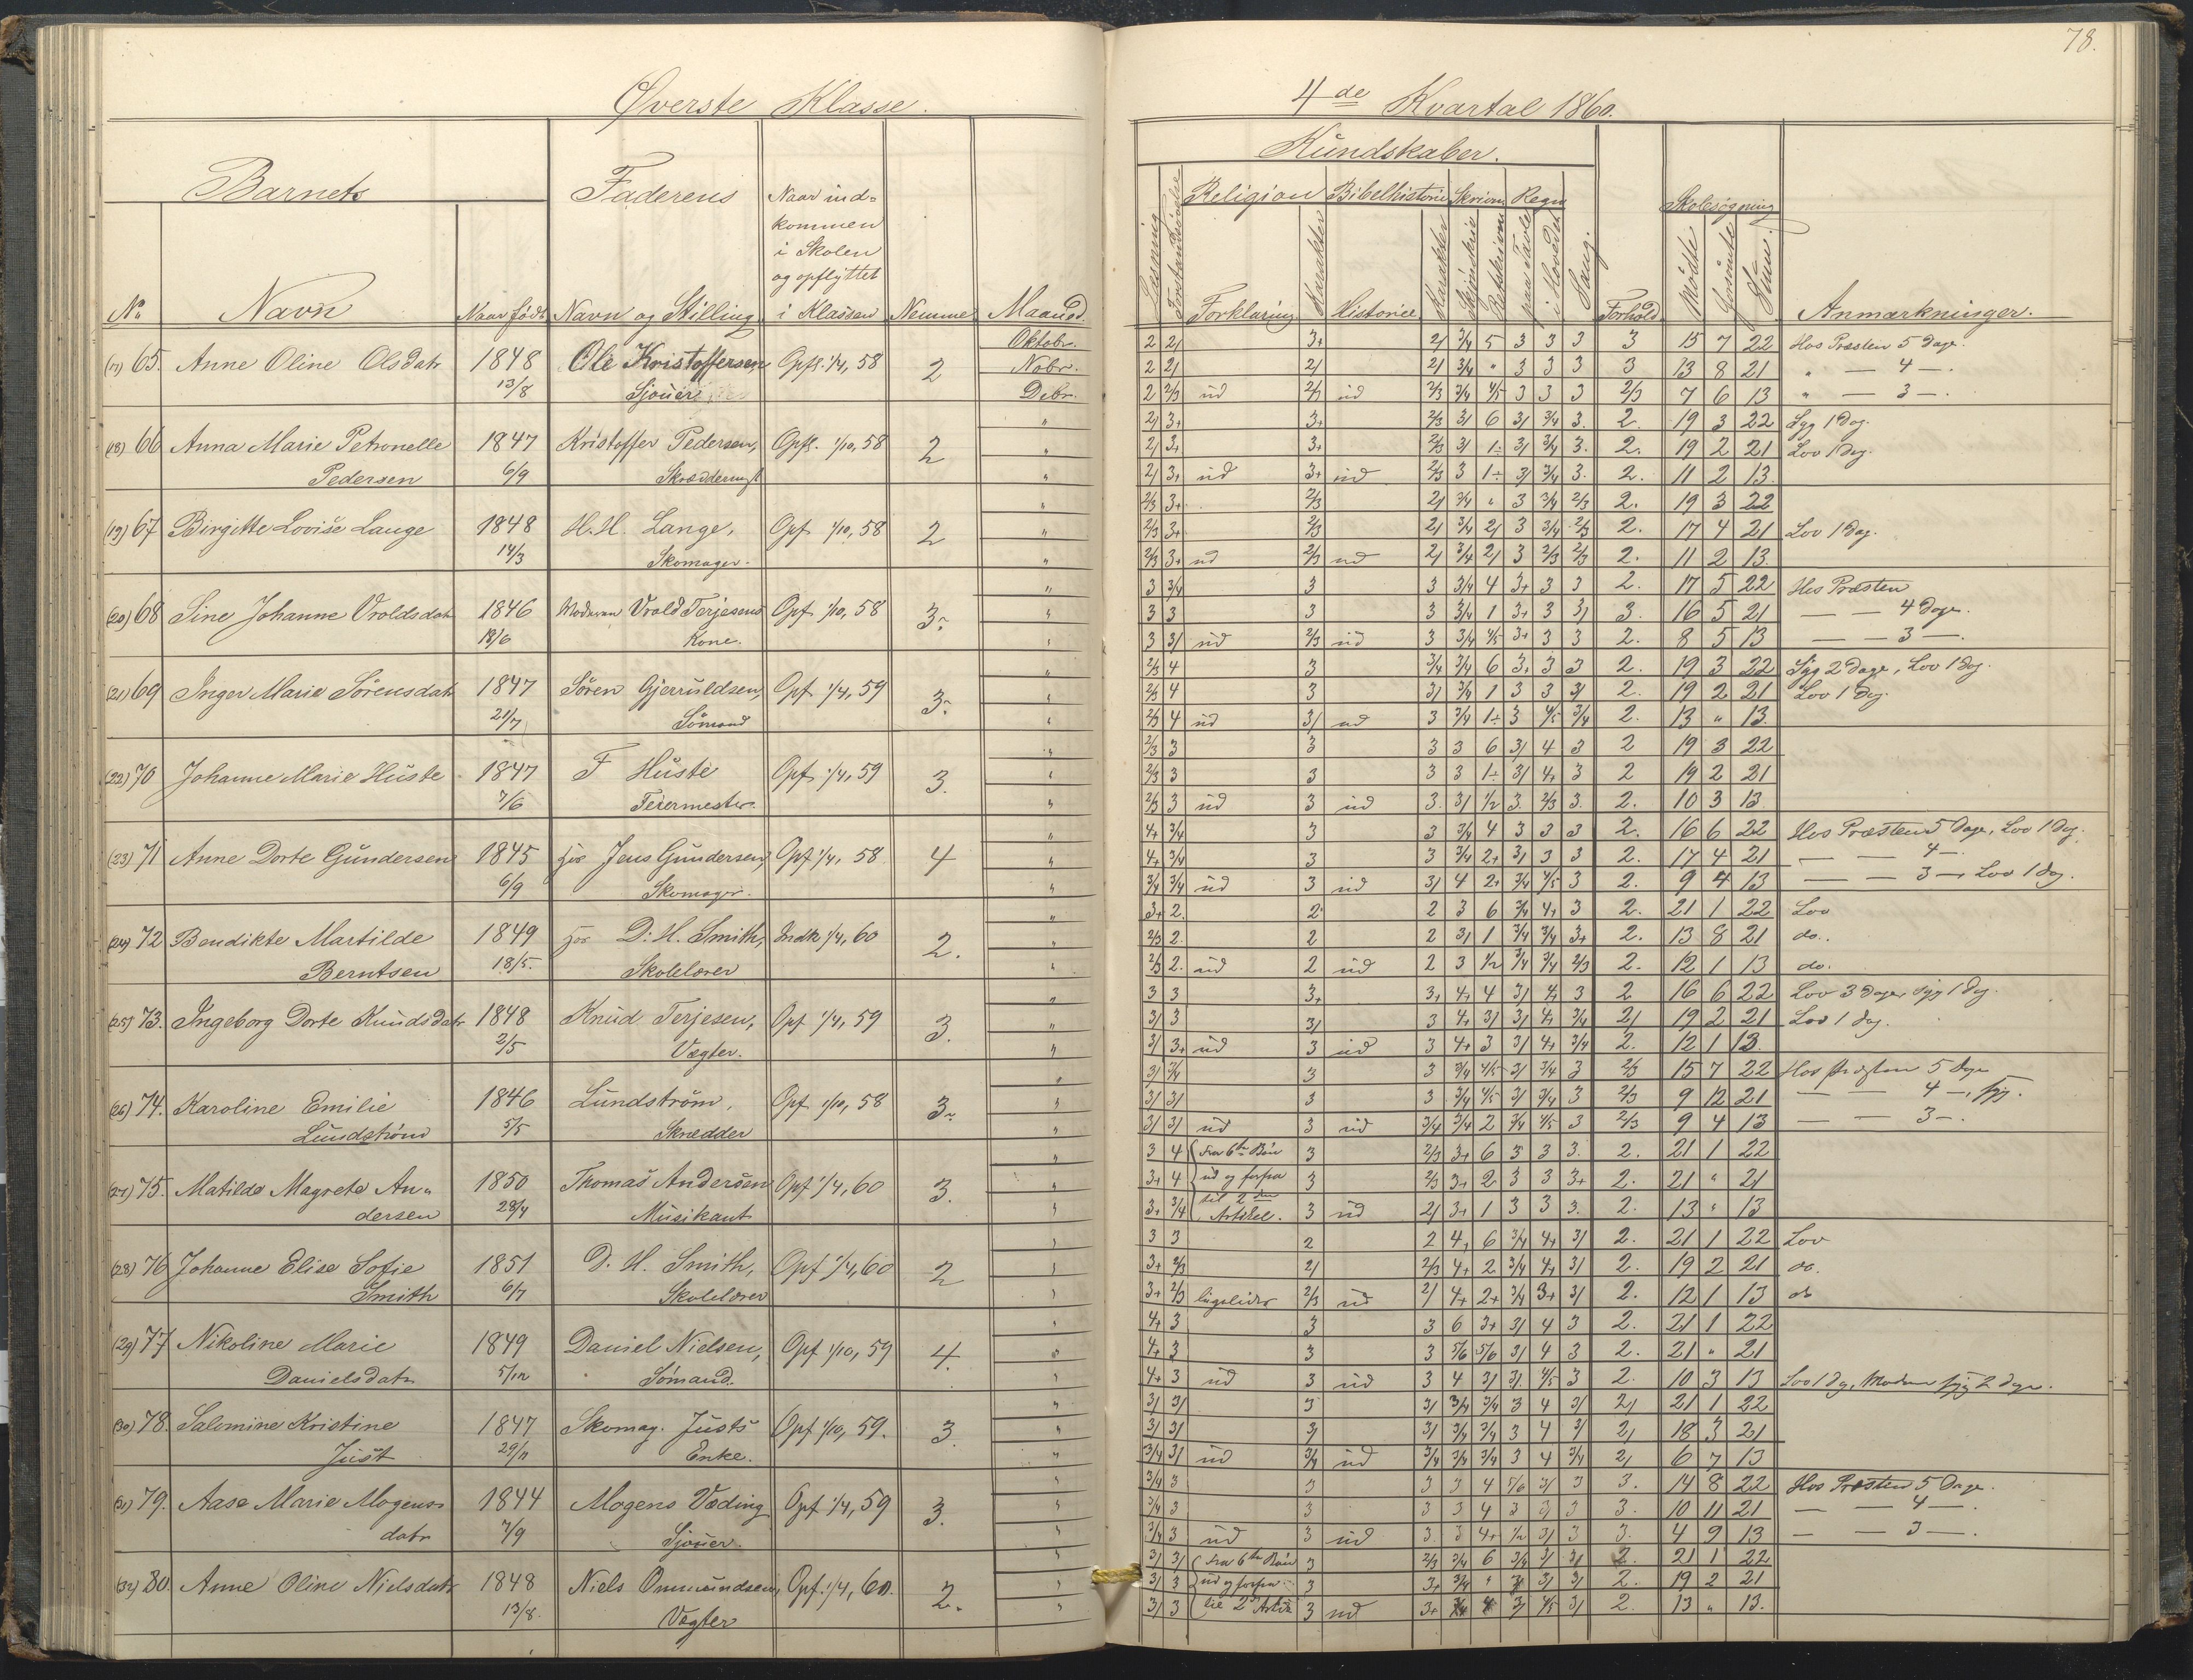 78.
Øverste Klasse.
4de Kvartal 1860.
Barnets
Faderens
Naar ind-
kommen
i Skolen
og opflyttet
i Klassen
No
Navn
Naar født
Navn og Stilling
Nemme
Maaned.
Kundskaber.
Religion
Bibelhistorie
Skrivn
Regn
Skolesøgning
Læsning
Forstandsøvelse
Forklaring
Karakter
Historie
Karakter
Skjønskriv
Retskrivn
paa Tavle
i Hovedet
Sang.
Forhold
Mødte
Forsømte
Sum.
Anmærkninger.
65. Anne Oline Olsdatr 1848 Ole Kristoffersen, Opfl. 1/4, 58 2 Oktobr.
13/8 Sjouer Nobr.
Debr.
2 2/ 3+ 2/ 3/4 5 3 3 3 3 15 7 22 Hos Præsten 5 Dage.
2 2/ 2/ 2/ 3/4 " 3 3 3 3 13 8 21 " — 4 —.
2 2/3 ud 2/3 ud 2/3 3/4 4/5 3 3 3 2/3 7 6 13 " — 3 —.
(18) 66 Anna Marie Petronelle 1847 Kristoffer Pedersen, Opfl. 1/10, 58 2
Pedersen 6/9
2/ 3+ 3+ 2/3 3/ 6 3/ 3/4 3. 2. 19 3 22 Syg 1 Dag.
2/ 3+ 3+ 2/3 3/ 1÷ 3/ 3/4 3. 2. 19 2 21 Lov 1 Dag.
2/ 3+ ud 3+ ud 2/3 3 1÷ 3/ 3/4 3. 2. 11 2 13.
(19) 67 Birgitte Lovise Lange 1848 H. H. Lange, Opf. 1/10, 58 2
14/3 Skomager.
2/3 3+ 2/3 2/ 3/4 " 3 3/4 2/3 2. 19 3 22
2/3 3+ 2/3 2/ 3/4 2/ 3 3/4 2/3 2. 17 4 21 Lov 1 Dag.
2/3 3+ ud 2/3 ud 2/ 3/4 2/ 3 2/3 2/3 2. 11 2 13.
(20) 68 Sine Johanne Vroldsdatr 1846 Moderen Vrold Terjesens Opf. 1/10, 58 3.
18/6 Kone.
3 3/4 3 3 3/4 4 3+ 3 3 2. 17 5 22 Hos Præsten
3 3 3 3 3/4 1 3+ 3 3/ 3. 16 5 21 — — 4 Dage.
3 3/ ud 2/3 ud 3 3/4 4/5 3+ 3 3 2. 8 5 13 — — 3 —.
(21) 69 Inger Marie Sörensdatr 1847 Sören Gjeruldsen, Opf. 1/4, 59 3.
21/7 Sömand
2/3 4 3 3/4 3/4 6 3. 3 3 2. 19 3 22 Syg 2 Dage, Lov 1 Dag.
2/3 4 3 3/ 3/4 1 3 3 3/ 2. 19 2 21 Lov 1 Dag.
2/3 4 ud 3/ ud 3 3/4 1÷ 3 4/5 3/4 2. 13 " 13.
(22) 70 Johanne Marie Huste 1847 F Huste Opf. 1/4, 59 3.
7/6 Feiermester.
2/3 3 3 3 3 6 3/ 4 3 2 19 3 22
2/3 3 3 3 3 1÷ 3/ 4+ 3 2 19 2 21
2/3 3 ud 3 ud 3. 3/ 1/2 3. 2/3 3. 2. 10 3 13
(23) 71 Anne Dorte Gundersen 1845 hos Jens Gundersen, Opf. 1/4, 58 4
6/9 Skomager.
4+ 3/4 3 3 3/4 4 3 3 3 2. 16 6 22 Hos Præsten 5 Dage, Lov 1 Dag.
4+ 3/4 3 3 3/4 2+ 3/ 3 3 2. 17 4 21 — — 4 —.
3/4 3/4 ud 3 ud 3/ 4 2+ 3/4 4/5 3 2. 9 4 13 — — 3 —, Lov 1 Dag.
(24) 72 Bendikte Martilde 1849 hos D. H. Smith, Indk 1/4, 60 2.
Berntsen 18/5. Skolelærer
3+ 2. 2 2 3 6 3/4 4+ 3 2. 21 1 22 Lov
2/3 2. 2 2 3/ 1 3/4 3/4 3+ 2. 13 8 21 do.
2/3 2. ud 2 ud 2 3 1/2 3/4 3/4 2/3 2. 12 1 13 do.
(25) 73. Ingeborg Dorte Knudsdatr 1848 Knud Terjesen, Opf 1/4, 59 3.
2/5 Vægter.
3 3 3+ 3+ 4+ 4 3/ 4+ 3 2 16 6 22 Lov 3 Dage, syg 1 Dag.
3/ 3 3/ 3 4+ 3/ 3/ 4+ 3/4 2/ 19 2 21 Lov 1 Dag.
3/ 3+ ud 3 ud 3 4+ 3 3/ 4+ 3/4 2. 12 1 13.
(26) 74. Karoline Emilie 1846 Lundström, Opf 1/10, 58 3.
Lundström 5/5 Skrædder
3/ 3/4 3 3 3/4 4/5 3/ 3/4 3 2/3 15 7 22 Hos Præsten 5 Dage
3/ 3/ 3 3 3/4 4/5 3/ 3/4 3 2/3 9 12 21 — — 4 —, syg.
3/ 3/ ud 3 ud 3/4 3/4 2 3/4 4/5 3 2/3 9 4 13 — — 3 —.
(27) 75. Matilde Magrete An- 1850 Thomas Andersen Opf 1/4, 60 3.
dersen 28/4 Musikant
3 4 Fra 6te Bön 3 2/3 3+ 6 3 3 3. 2. 21 1 22
3+ 4 ud og forfra 3 2/3 3+ 2 3 3 3+ 2. 21 " 21
3+ 3/4 til 2den Artikel. 3 ud 2/ 3+ 1 3 3 3. 2. 13 " 13
(28) 76 Johanne Elise Sofie 1851 D. H. Smith, Opf 1/4, 60 2
Smith 6/7 Skolelærer
3 3 2 2 4+ 6 3/4 4+ 3/ 2. 21 1 22 Lov
3+ 2/3 2/ 2/3 4+ 2 3/4 4+ 3/ 2. 19 2 21 do.
3+ 2/3 2/3 ud 2/ 4+ 2+ 3/4 3+ 3/ 2. 12 1 13 do
(29) 77 Nikoline Marie 1849 Daniel Nielsen, Opf 1/10, 59 4.
Danielsdatr 5/12 Sömand.
4+ 3 3 3 6 3+ 3/ 4 3 2. 21 1 22
4+ 3 3 3 5/6 5/6 3/ 4 3 2. 21 " 21
4+ 3 ud 3 ud 3 4 3/ 3/ 4/5 3 2. 10 3 13 Lov 1 Dag, Moder syg 2 Dage.
(30) 78. Salomine Kristine 1847 Skomag. Justs Opf 1/10, 59. 3.
Just 29/11 Enke.
3/ 3/ 3 3/ 3/4 3/4 3 4 3/ 2/ 21 1 22
3/ 3/ 3/ 3/ 3/4 3/4 3 4 3/ 2/ 18 3 21
3/4 3/ ud 3/4 ud 3/4 3/4 3/4 3 4 3/4 2/ 6 7 13
(31) 79. Aase Marie Mogens- 1844 Mogens Væding Opf 1/4, 59 3.
datr 7/9 Sjouer.
3/4 3 3 3 3 4 5/6 3/ 3 3. 14 8 22 Hos Præsten 5 Dage.
3/4 3 3 3 3 4 3 3/ 3 3. 10 11 21 — — 4 —.
3/4 3 ud 3 ud 3 3 4+ 1/2 3/ 3 3. 4 9 13 — — 3 —.
(32) 80. Anne Oline Nielsdatr 1848 Niels Ommundsen, Opf. 1/4, 60. 2.
13/8. Vægter
3/ 3/ Fra 6te Bön 3 2/3 3/4 6 3/4 3/ 3/ 2. 21 1 22
3/ 3 ud og forfra 3 3+ 3/4 " 3/ 3/ 3/ 2. 19 2 21
3/ 3 til 2d Artik 3 ud 3+ 3/4 4 3/ 4/5 3/ 2. 13 " 13.